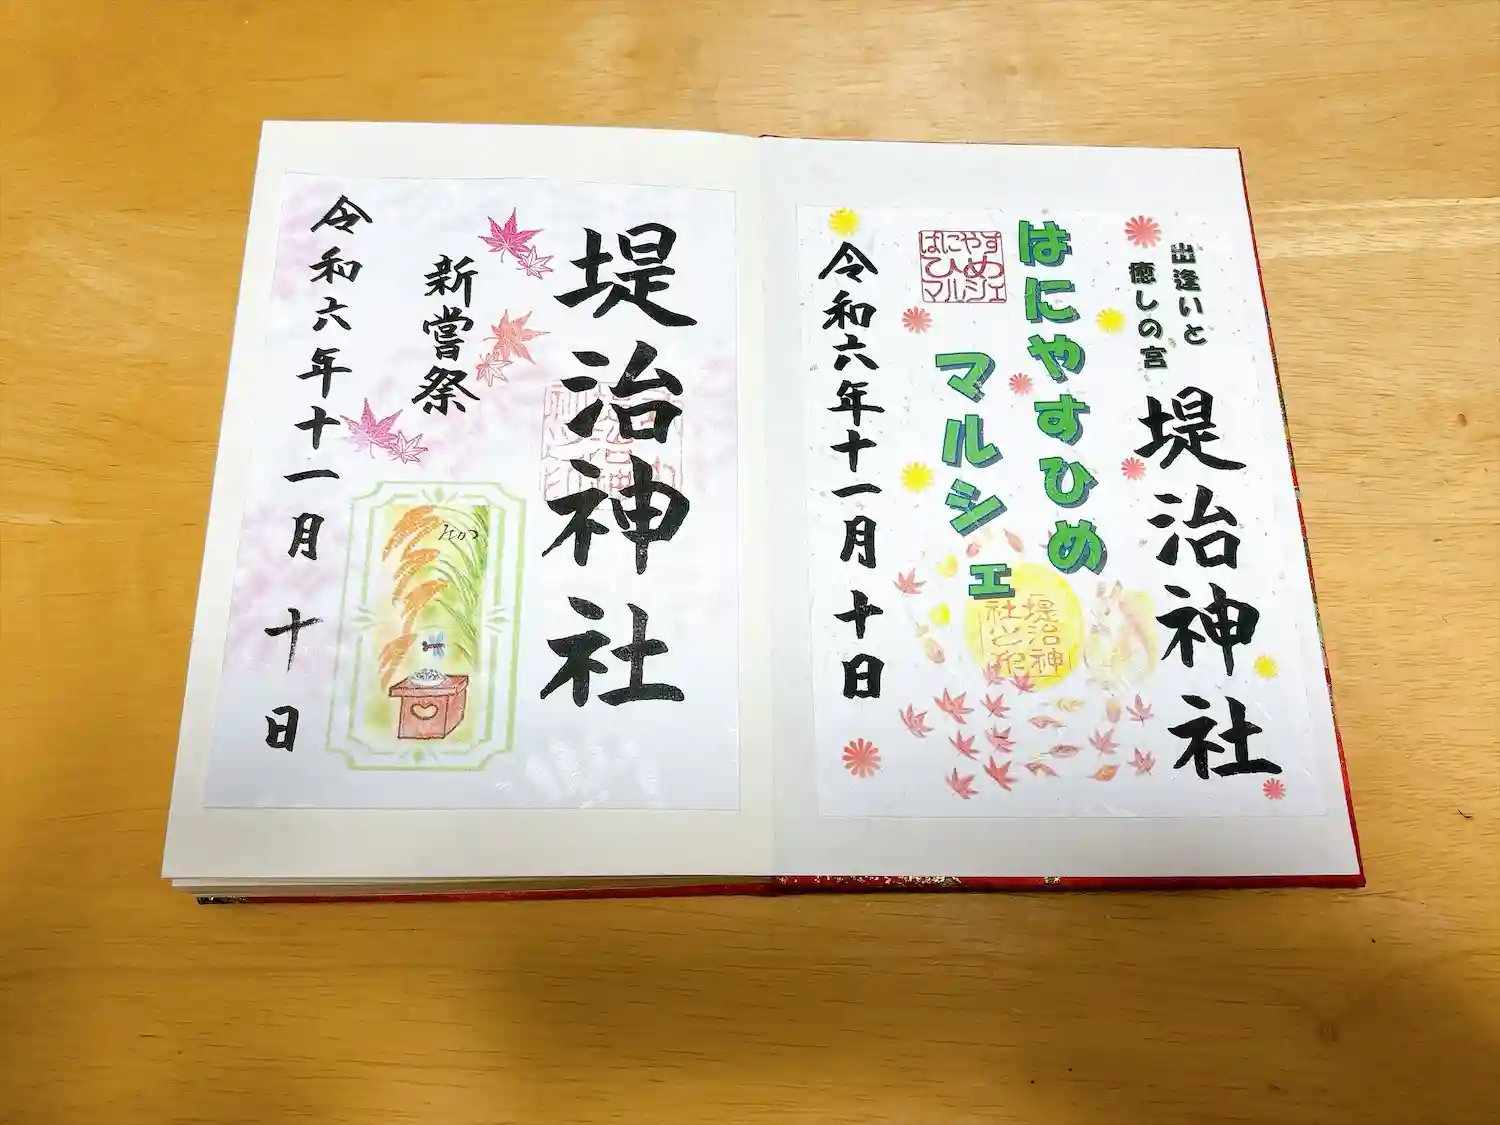 出逢いと
癒しの宮
堤治神社
はにやすひめ
マルシェ
はにやす
ひめ
マルシェ
堤治神
社之印
令和六年十一月十日
堤治神社
新嘗祭
令和六年十一月十日